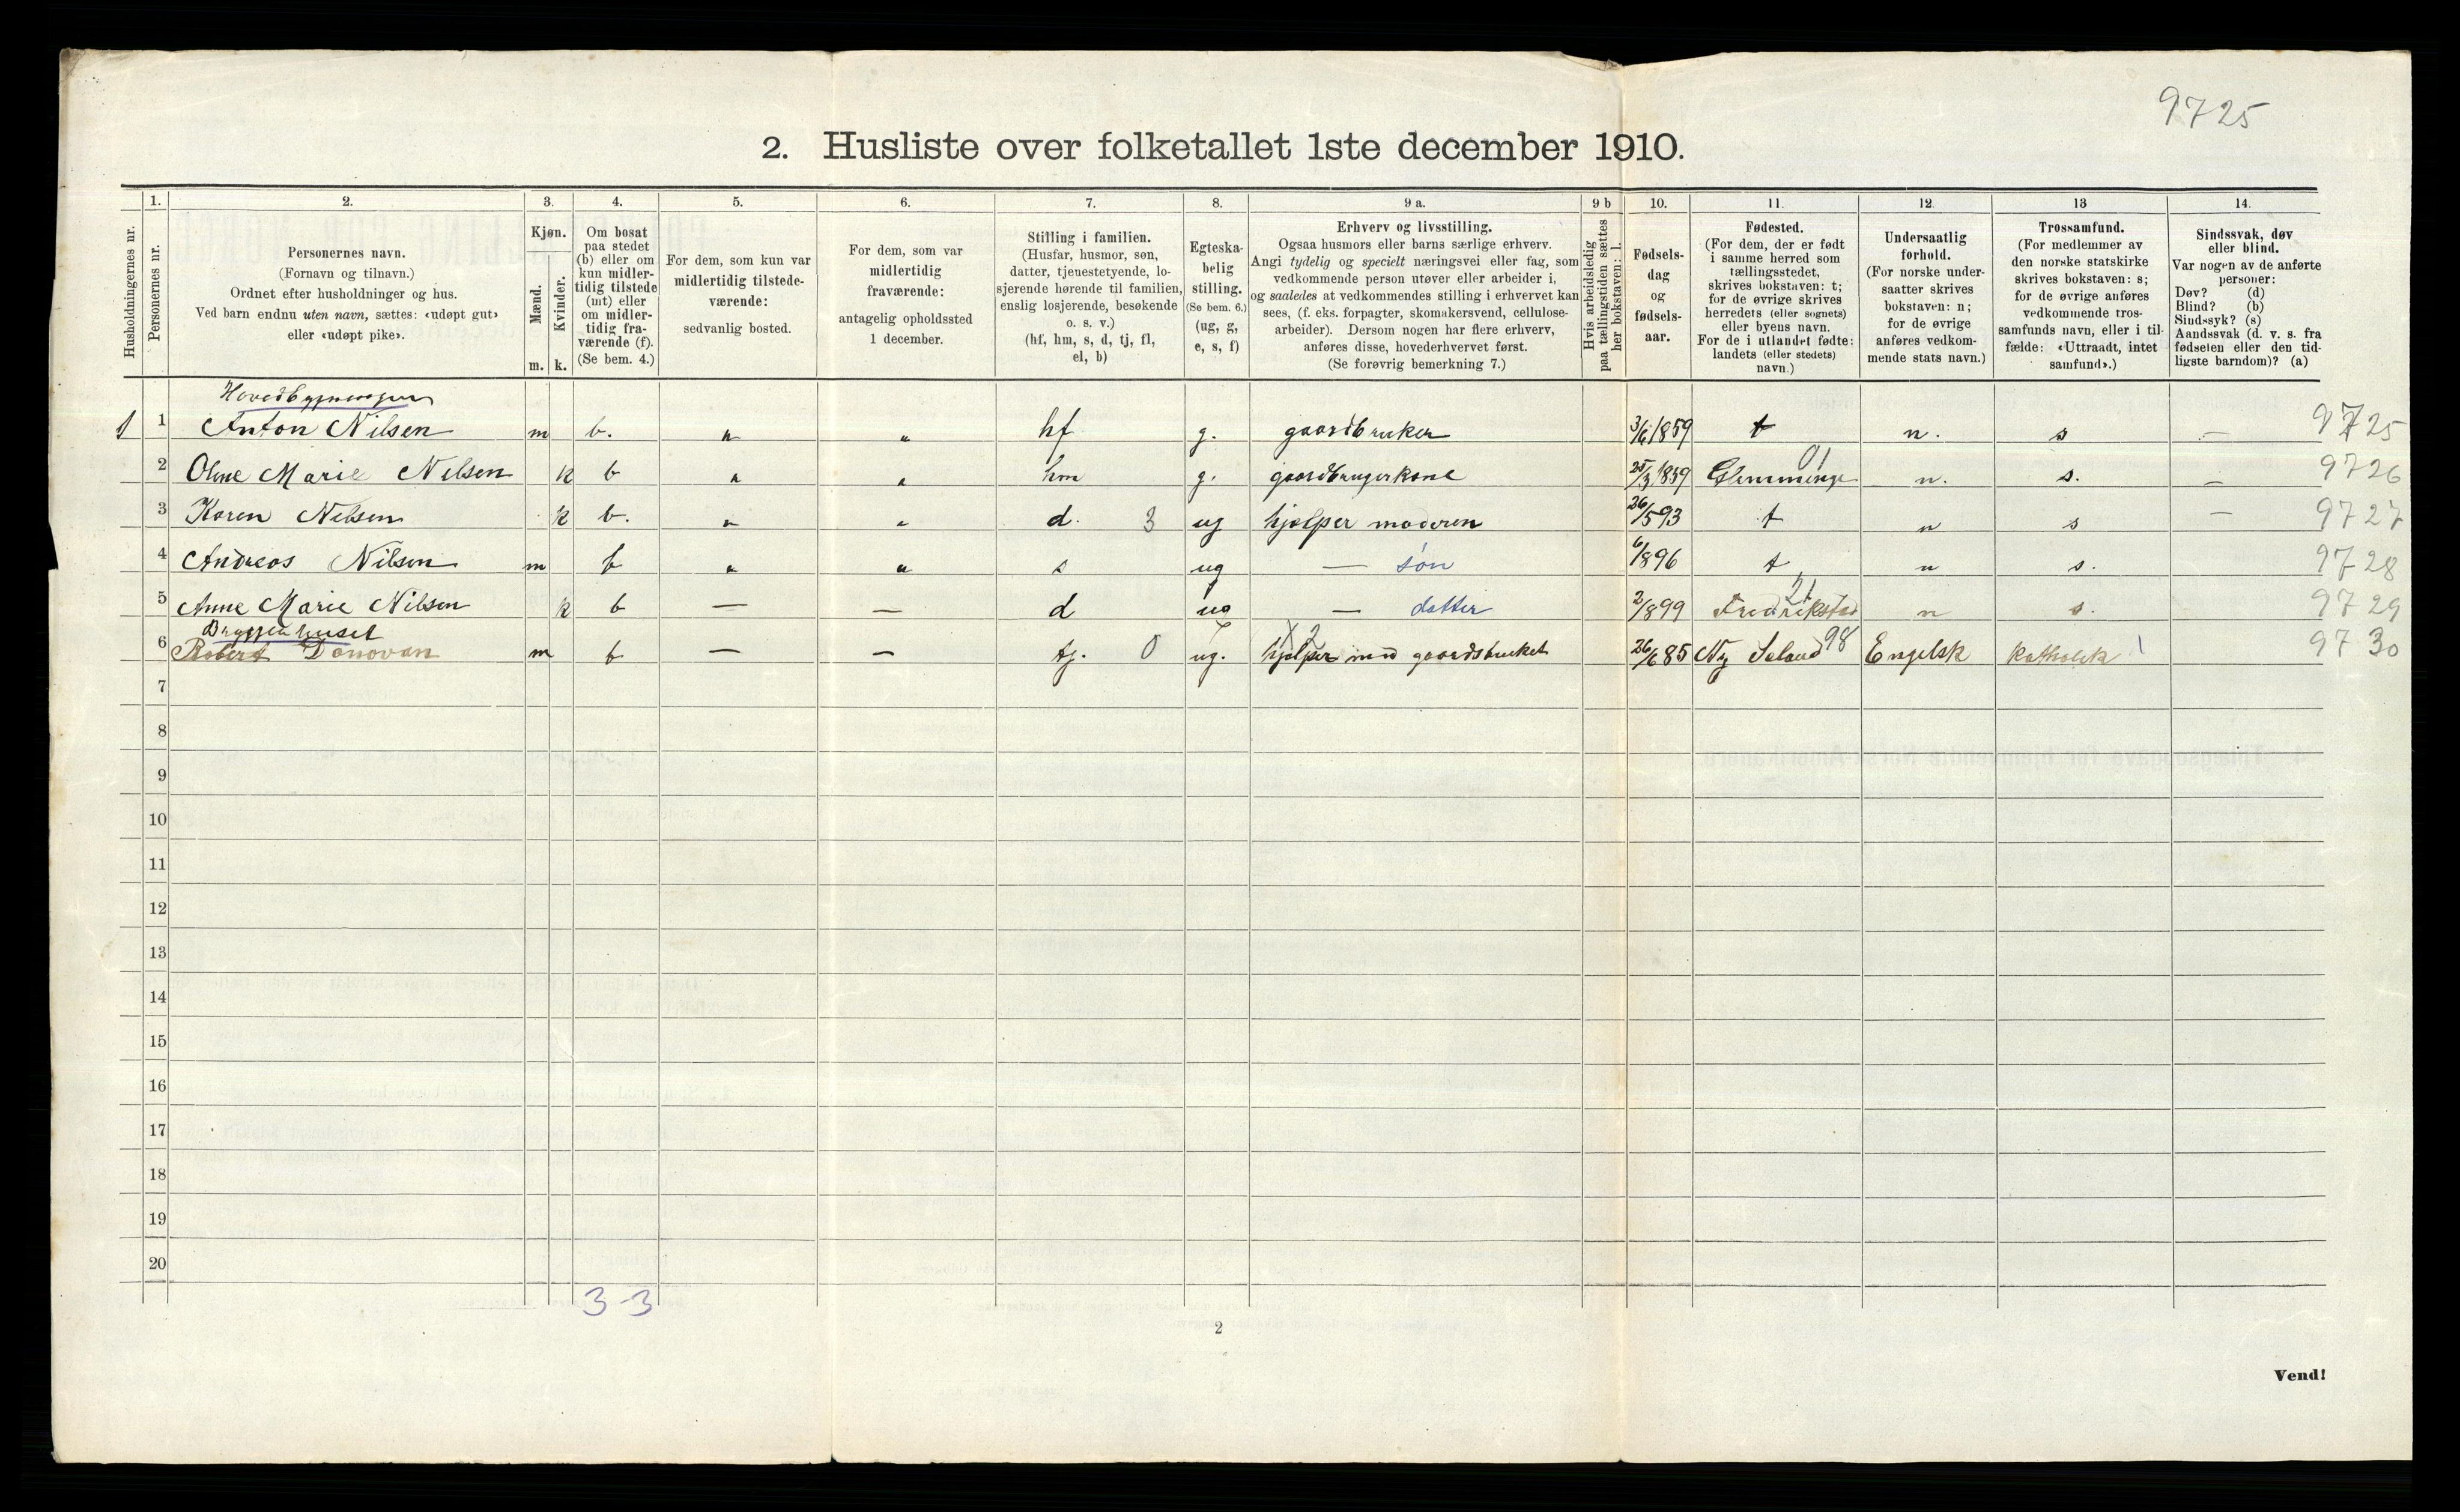 9725
2. Husliste over folketallet 1ste december 1910.
Husholdningernes nr.
1.
Personernes nr.
2.
Personernes navn.
(Fornavn og tilnavn.)
Ordnet efter husholdninger og hus.
Ved barn endnu uten navn, sættes: «udøpt gut»
eller «udøpt pike».
3.
Kjøn.
Mænd.
Kvinder.
m. k.
4.
Om bosat
paa stedet
(b) eller om
kun midler-
tidig tilstede
(mt) eller
om midler-
tidig fra-
værende (f).
(Se bem. 4.)
5.
For dem, som kun var
midlertidig tilstede-
værende:
sedvanlig bosted.
6.
For dem, som var
midlertidig
fraværende:
antagelig opholdssted
1 december.
7.
Stilling i familien.
(Husfar, husmor, søn,
datter, tjenestetyende, lo-
sjerende hørende til familien,
enslig losjerende, besøkende
o. s. v.)
(hf, hm, s, d, tj, fl,
el, b)
8.
Egteska-
belig
stilling.
(Se bem. 6.)
(ug, g,
e, s, f)
9 a.
Erhverv og livsstilling.
Ogsaa husmors eller barns særlige erhverv.
Angi tydelig og specielt næringsvei eller fag, som
vedkommende person utøver eller arbeider i,
og saaledes at vedkommendes stilling i erhvervet kan
sees, (f. eks. forpagter, skomakersvend, cellulose-
arbeider). Dersom nogen har flere erhverv,
anføres disse, hovederhvervet først.
(Se forøvrig bemerkning 7.)
9 b
Hvis arbeidsledig
paa tællingstiden sættes
her bokstaven: l.
10.
Fødsels-
dag
og
fødsels-
aar.
11.
Fødested.
(For dem, der er født
i samme herred som
tællingsstedet,
skrives bokstaven: t;
for de øvrige skrives
herredets (eller sognets)
eller byens navn.
For de i utlandet fødte:
landets (eller stedets)
navn.)
12.
Undersaatlig
forhold.
(For norske under-
saatter skrives
bokstaven: n;
for de øvrige
anføres vedkom-
mende stats navn.)
13
Trossamfund.
(For medlemmer av
den norske statskirke
skrives bokstaven: s;
for de øvrige anføres
vedkommende tros-
samfunds navn, eller i til-
fælde: «Uttraadt, intet
samfund».)
14.
Sindssvak, døv
eller blind.
Var nogen av de anførte
personer:
Døv? (d)
Blind? (b)
Sindssyk? (s)
Aandssvak (d. v. s. fra
fødselen eller den tid-
ligste barndom)? (a)
Hovedbygningen
1 1 Anton Nilsen m b. " " hf g. gaardbruker 3/6 1859 t n. s — 9725
2 Oline Marie Nilsen k b " " hm g. gaardbrugerkone 25/3 1859 Glemminge 01 n. s. — 9726
3 Karen Nilsen k b. " " d. 3 ug hjælper moderen 26/5 93 t n s — 9727
4 Andreas Nilsen m b " " s ug — søn 6/8 96 t n s. 9728
5 Anne Marie Nilsen k b — — d ug — datter 2/8 99 Fredrikstad 21 n s. 9729
Bryggerhuset
6 Robert Donovan m b — — tj. 0 ug. hjælper med gaardsbruket 26/6 85 Ny Seland 98 Engelsk katholsk 9730
7
8
9
10
11
12
13
14
15
16
17
18
19
20
3-3
2
Vend!